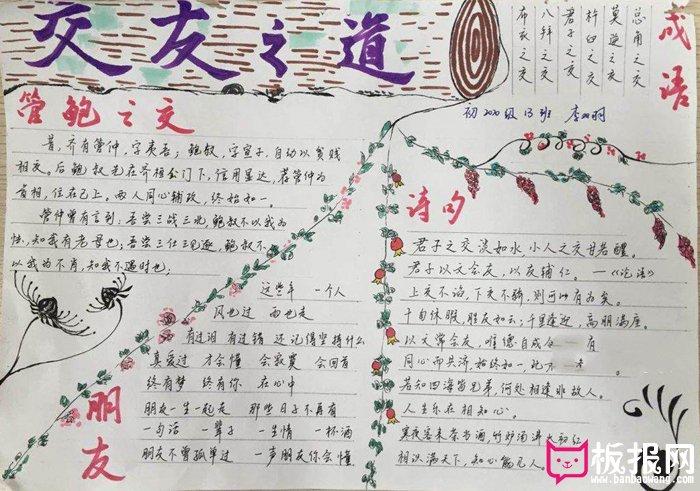 交友之道
成语
总角之交
莫逆之交
杵臼之交
君子之交
八拜之交
布衣之交
初2020级13班
管鲍之交
昔，齐有管仲，字夷吾；鲍叔，字宣子，自幼以贫贱
相交。后鲍叔先在齐桓公门下，信用显达，荐管仲为
首相，位在己上。两人同心辅政，终始如一。
管仲曾有言到：吾尝三战三北，鲍叔不以我为
怯，知我有老母也；吾尝三仕三见逐，鲍叔不
以我为不肖，知我不遇时也；
朋友
这些年 一个人
风也过 雨也走
有过泪 有过错 还记得坚持什么
真爱过 才会懂 会寂寞 会回首
终有梦 终有你 在心中
朋友一生一起走 那些日子不再有
一句话 一辈子 一生情 一杯酒
朋友不曾孤单过 一声朋友你会懂
诗句
君子之交淡如水，小人之交甘若醴。
君子以文会友，以友辅仁。——《论语》
上交不谄，下交不骄，则可以有为矣。
十旬休暇，胜友如云；千里逢迎，高朋满座。
以文常会友，唯德自成
同心而共济，始终如一，此
若知四海皆兄弟，何处相逢非故人。
人生乐在相知心。
寒夜客来茶当酒，竹炉汤沸火初红
相识满天下，知心能几人。
板报网
www.banbaowang.com